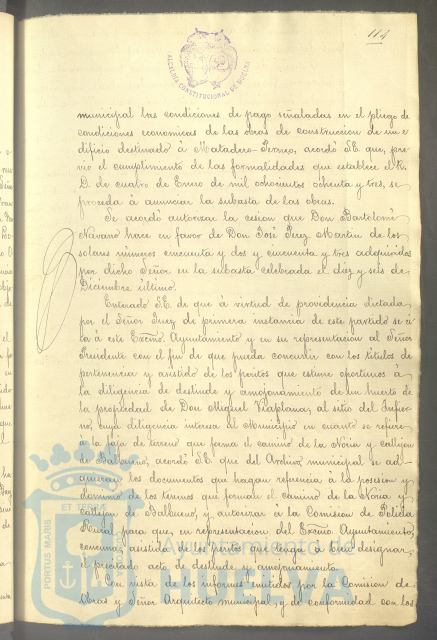 114
ALCALDIA CONSTITUCIONAL DE HUELVA
municipal las condiciones de pago señaladas en el pliego de
condiciones economicas de las obras de construccion de un e
dificio destinado á Matadero-Perneo, acordó S.E. que, pre
vio el cumplimiento de las formalidades que establece el R.
D. de cuatro de Enero de mil ochocientos ochenta y tres, se
proceda á anunciar la subasta de las obras.
Se acordó autorizar la cesion que Don Bartolomé
Navarro hace en favor de Don José Perez Martin de los
solares numeros cincuenta y dos y cincuenta y tres adquiridos
por dicho Señor en la subasta celebrada el diez y seis de
Diciembre último.
Enterado S.E. de que á virtud de providencia dictada
por el Señor Juez de primera instancia de este partido se ci
ta á este Excmo. Ayuntamiento y en su representacion al Señor
Presidente con el fin de que pueda concurrir con los titulos de
pertenencia y asistido de los peritos que estime oportunos á
la diligencia de deslinde y amojonamiento de un huerto de
la propiedad de Don Miguel Viaplana, al sitio del
cuya diligencia interesa al Municipio en cuanto se refiere
á la faja de terreno que forma el camino de la Noria y callejon
de Balbueno, acordó S.E. que del Archivo municipal se ad-
quieran los documentos que hagan referencia á la posesion y
dominio de los terrenos que forman el camino de la Noria y
callejon de Balbueno, y autorizar á la Comision de Policia
Rural para que en representacion del Excmo. Ayuntamiento
concurra, asistida de los peritos que tenga á bien designar,
al precitado acto de deslinde y amojonamiento.
Con vista de los informes emitidos por la Comision de
Obras y Señor Arquitecto municipal, y de conformidad con los
PORTUS MARIS ET TERRAE
Ayuntamiento de
HUELVA